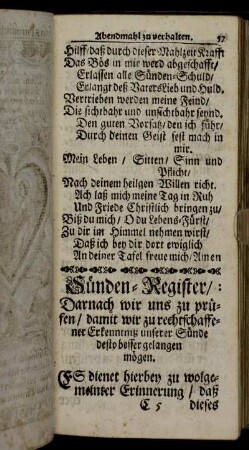 Abendmahl zu verhalten. 57
Hilff / daß durch dieser Mahlzeit Krafft
Das Bös in mir werd abgeschafft /
Erlassen alle Sünden-Schuld /
Erlangt deß Vaters Lieb und Huld.
Vertrieben werden meine Feind /
Die sichtbahr und unsichtbahr seynd.
Den guten Vorsatz / den ich führ /
Durch deinen Geist fest mach in
mir.
Mein Leben / Sitten / Sinn und
Pflicht /
Nach deinem heilgen Willen richt.
Ach laß mich meine Tag in Ruh
Und Friede Christlich bringen zu /
Biß du mich / O du Lebens-Fürst /
Zu dir im Himmel nehmen wirst /
Daß ich bey dir dort ewiglich
An deiner Tafel freue mich / Amen
Sünden-Register / :
Darnach wir uns zu prü-
fen / damit wir zu rechtschaffe-
ner Erkenntnis unserer Sünde
desto besser gelangen
mögen.
ES dienet hierbey zu wolge-
meinter Erinnerung / daß
C 5 dieses